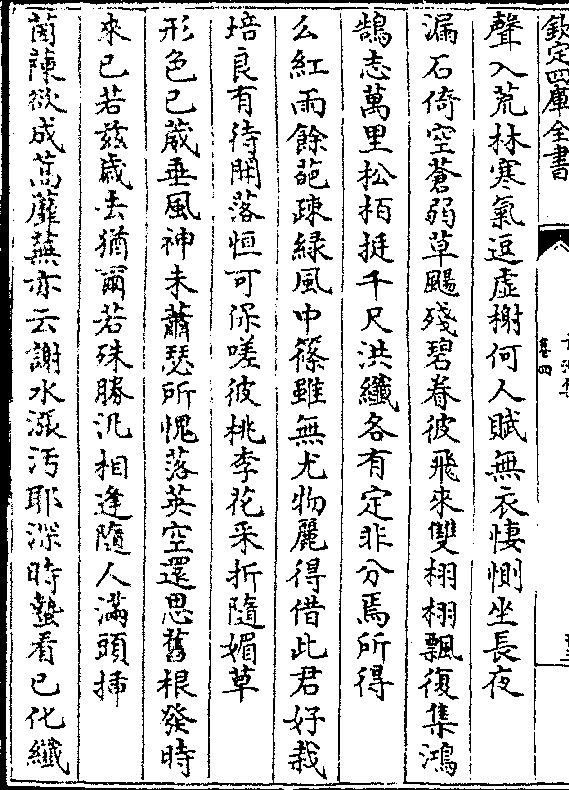 欽定四庫全書
卷四
聲入荒林寒氣逗虛榭何人賦無衣悽惻坐長夜
漏石倚空蒼弱草颺殘碧眷彼飛來雙栩栩飄復集鴻
鵠志萬里松栢挺千尺洪纖各有定非分焉所得
幺紅雨餘葩疎綠風中篠雖無尤物麗得借此君好栽
培良有待開落恒可保嗟彼桃李花采折隨媚草
形色已蕆垂風神未蕭瑟所愧落英空還思舊根發時
來已若兹歲去猶爾若殊勝汎相逢隨人滿頭插
茵諫欲成萬蘼蕪亦云謝水漲污耶深時蟄看已化纖